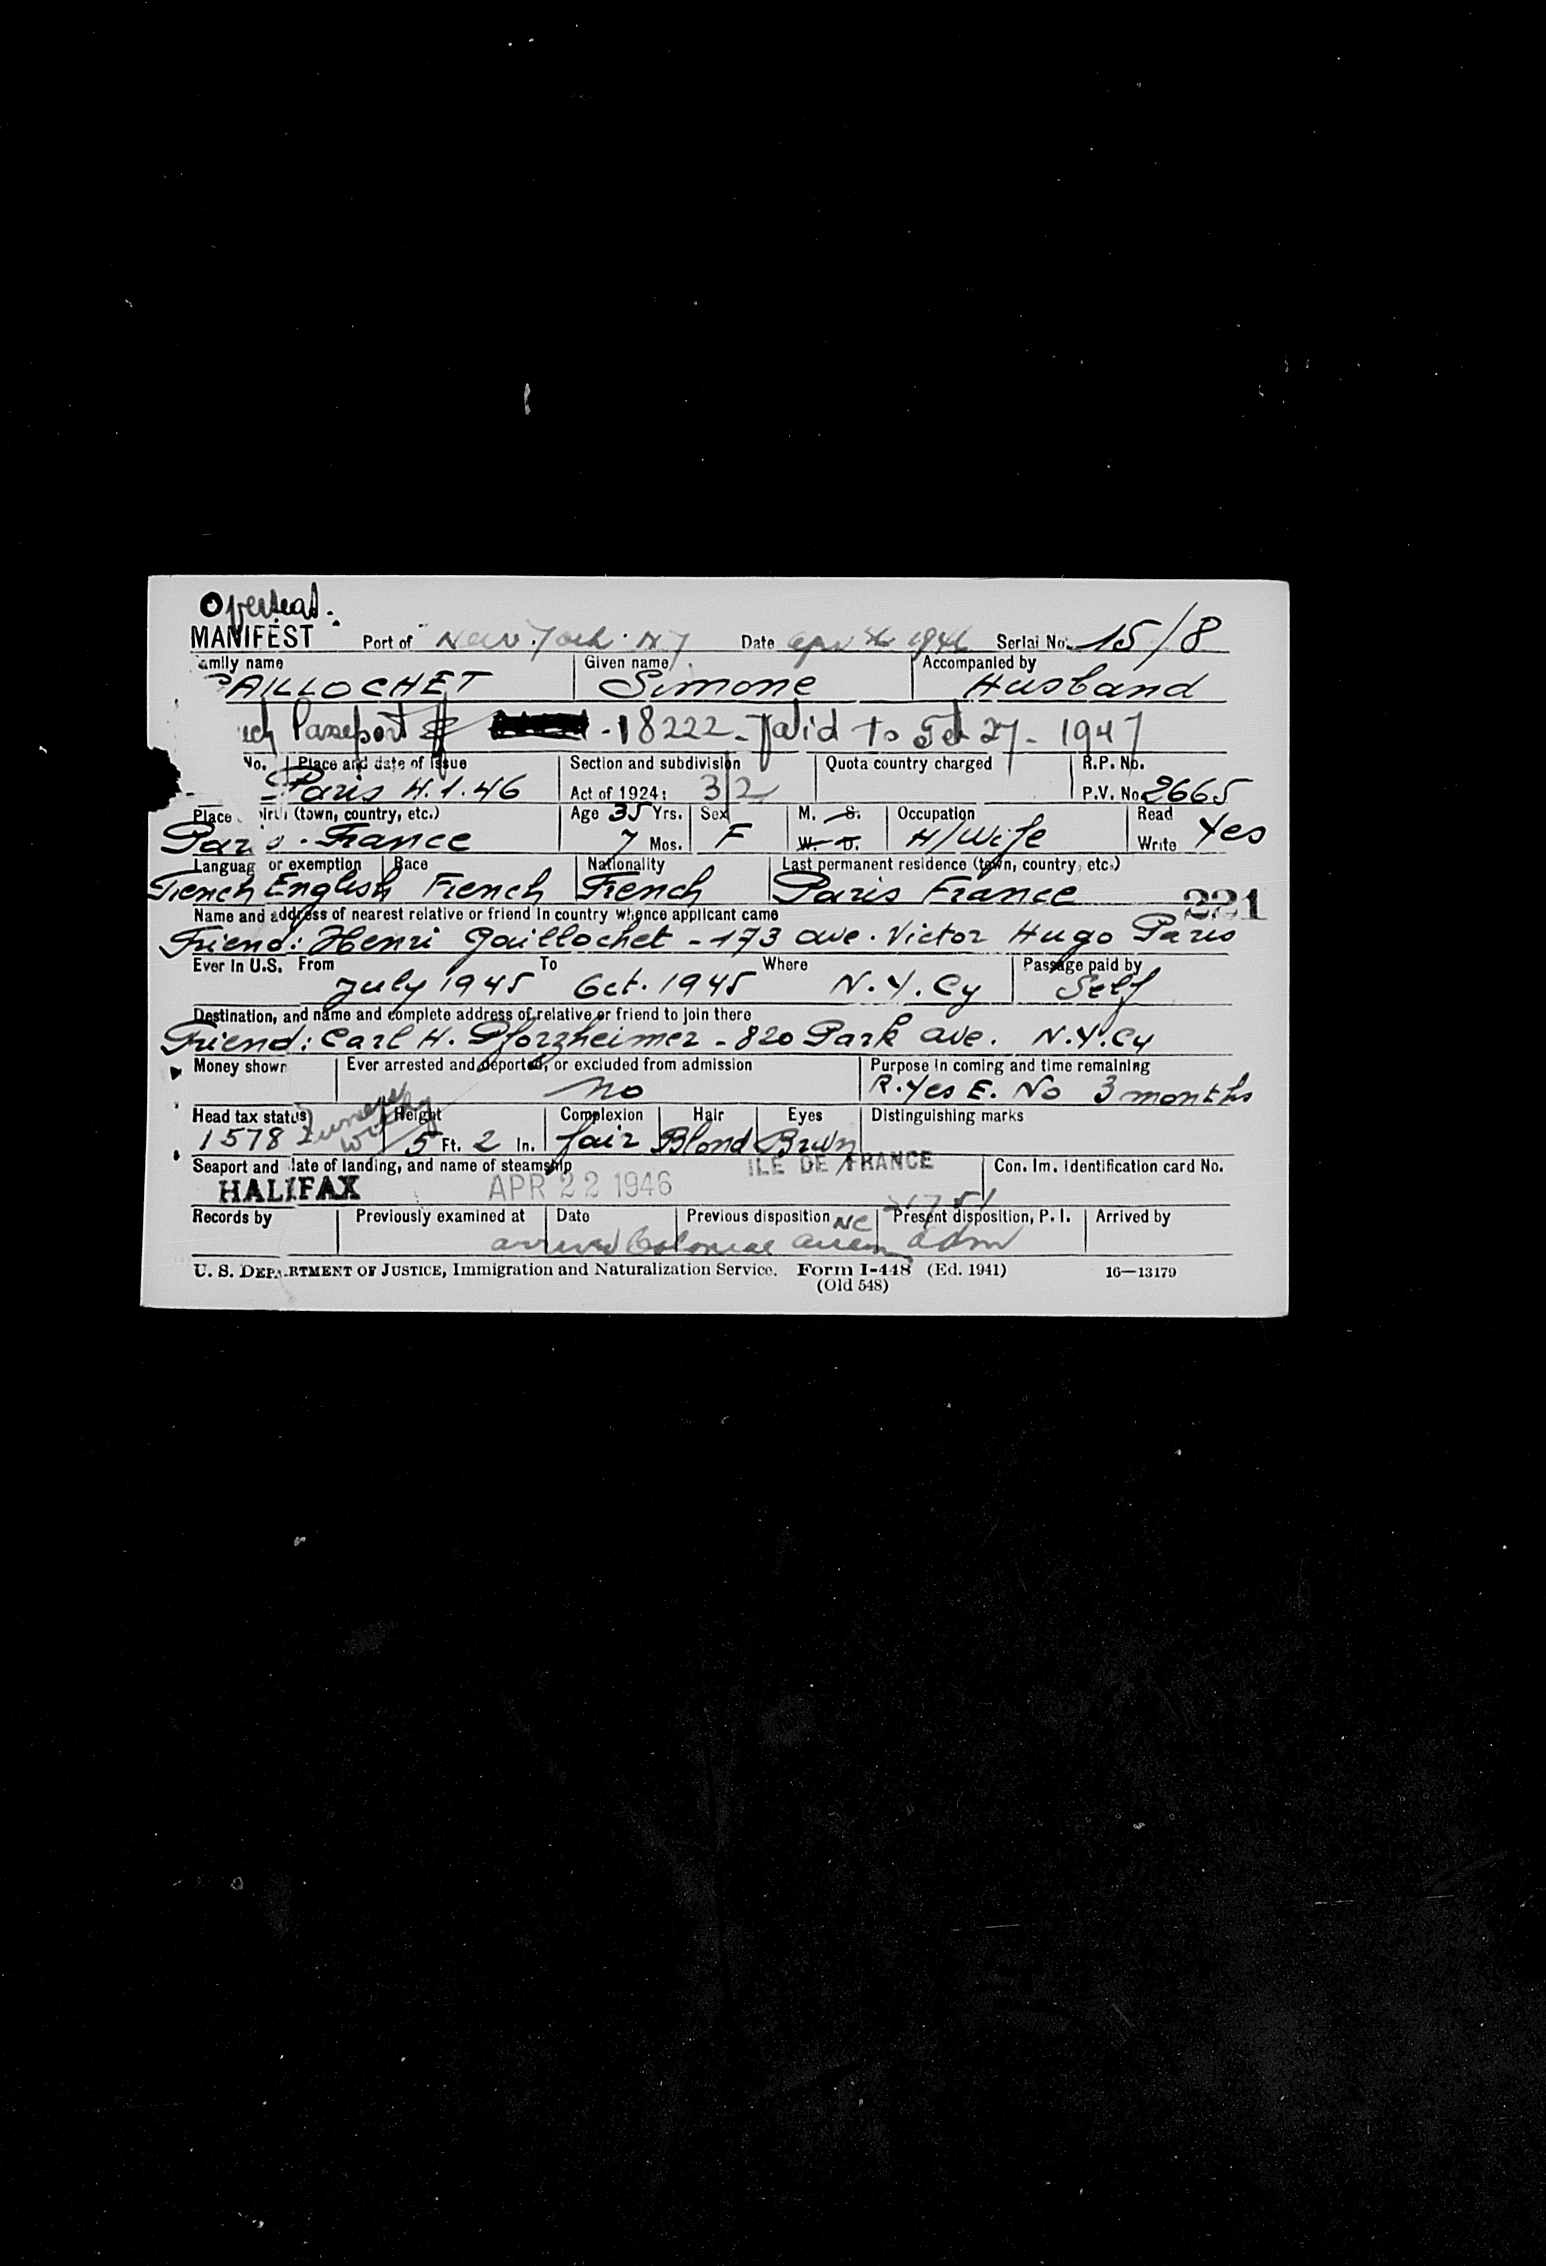 Overseas.
MANIFEST Port of New York. N Y Date 1946 Serial No. 15/8
amily name Given name Accompanied by
GAILLOCHET Simone Husband
ch Passeport # -18222- Valid to Feb 27- 1947
No. Place and date of issue Section and subdivision Quota country charged R.P. No.
Paris 4.1.46 Act of 1924: 3/2 P.V. No. 2665
Place birth (town, country, etc.) Age 35 Yrs. Sex M. S. Occupation Read
Paris. France 7 Mos. F W. D. H/Wife Write Yes
Languag or exemption Race Nationality Last permanent residence (town, country, etc.)
French English French French Paris France
221
Name and address of nearest relative or friend in country whence applicant came
Friend: Henri Gaillochet - 173 ave. Victor Hugo Paris
Ever in U.S. From To Where Passage paid by
July 1945 Oct. 1945 N.Y. Cy Self
Destination, and name and complete address of relative or friend to join there
Friend: Carl H. Pforzheimer - 820 Park ave. N.Y. Cy
Money shown Ever arrested and deported, or excluded from admission Purpose in coming and time remaining
No R. Yes E. No 3 months
Head tax status Height Complexion Hair Eyes Distinguishing marks
1578 5 Ft. 2 In. fair Blond Brwn
Seaport and date of landing, and name of steamship ILE DE FRANCE Con. Im. Identification card No.
HALIFAX APR 22 1946
Records by Previously examined at Date Previous disposition Present disposition, P. I. Arrived by
NC
arrived Colonial adm
U. S. DEPARTMENT OF JUSTICE, Immigration and Naturalization Service. Form I-448 (Ed. 1941) 16—13179
(Old 548)